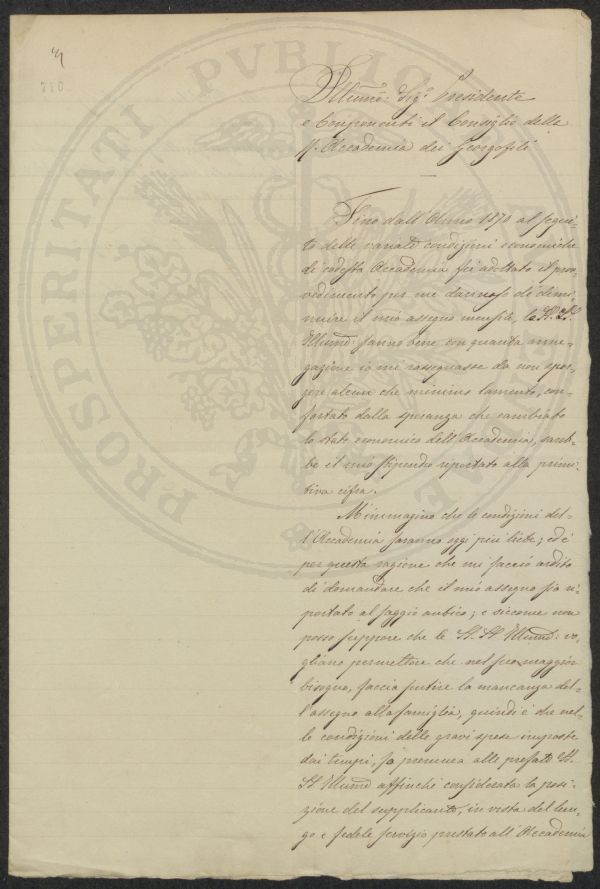 770
Illumo: Sigr Presidente
e Componenti il Consiglio delle
R. Accademia dei Georgofili
Fino dall'Anno 1870 al segui-
to delle variate condizioni economiche
di codesta Accademia fu adottato il prov-
vedimento per me dannoso di dimi-
nuire il mio assegno mensile, le SS. LL.
Illume: sanno bene con quanta anne-
gazione io mi rassegnasse da non spor-
gere alcun che minimo lamento, con-
fortato dalla speranza che cambiato
lo stato economico dell'Accademia, sareb-
be il mio stipendio riportato alla primi-
tiva cifra.
M'immagino che le condizioni del-
l'Accademia saranno oggi più liete; ed è
per questa ragione che mi faccio ardito
di domandare che il mio assegno sia ri-
portato al saggio antico; e siccome non
posso supporre che le SS. LL. Illume: vo-
gliano permettere che nel suo maggior
bisogno, faccia sentire la mancanza del-
l'assegno alla famiglia, quindi è che nel-
le condizioni delle gravi spese imposte
dai tempi, fa premura alle prefate SS.
LL. Illume affinché considerata la posi-
zione del supplicante, in vista del lun-
go e fedele servizio prestato all'Accademia
PROSPERITATI PVBLICAE